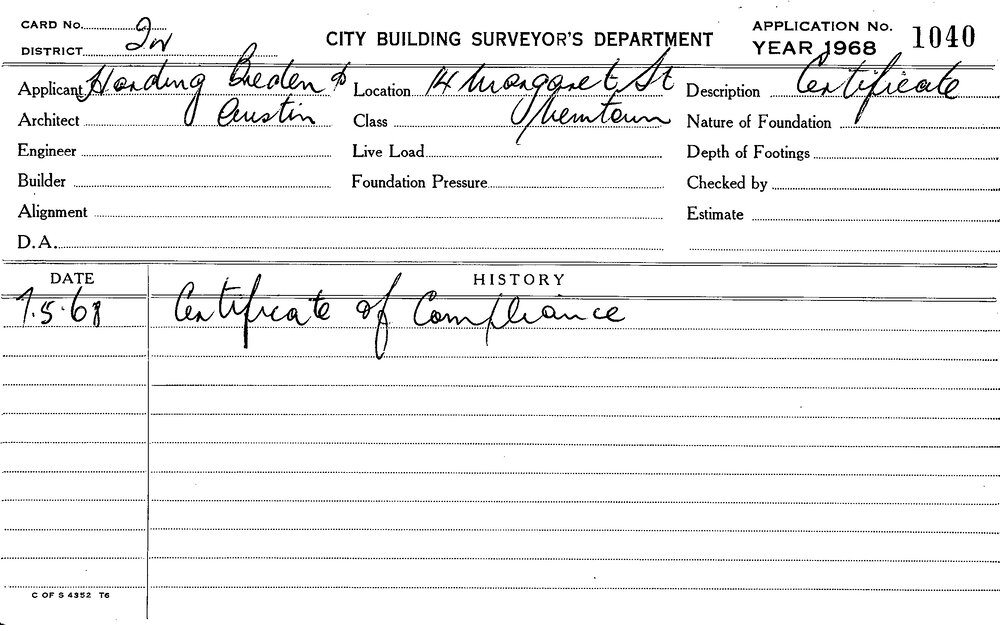 CARD No. 2w
DISTRICT
CITY BUILDING SURVEYOR'S DEPARTMENT
APPLICATION No. 1040
YEAR 1968
Applicant Harding Breden &
Location 14 Margaret St
Description Certificate
Architect Austin
Class Newtown
Nature of Foundation
Engineer
Live Load
Depth of Footings
Builder
Foundation Pressure
Checked by
Alignment
Estimate
D.A.
DATE
HISTORY
7.5.68 Certificate of Compliance
C OF S 4352 T6